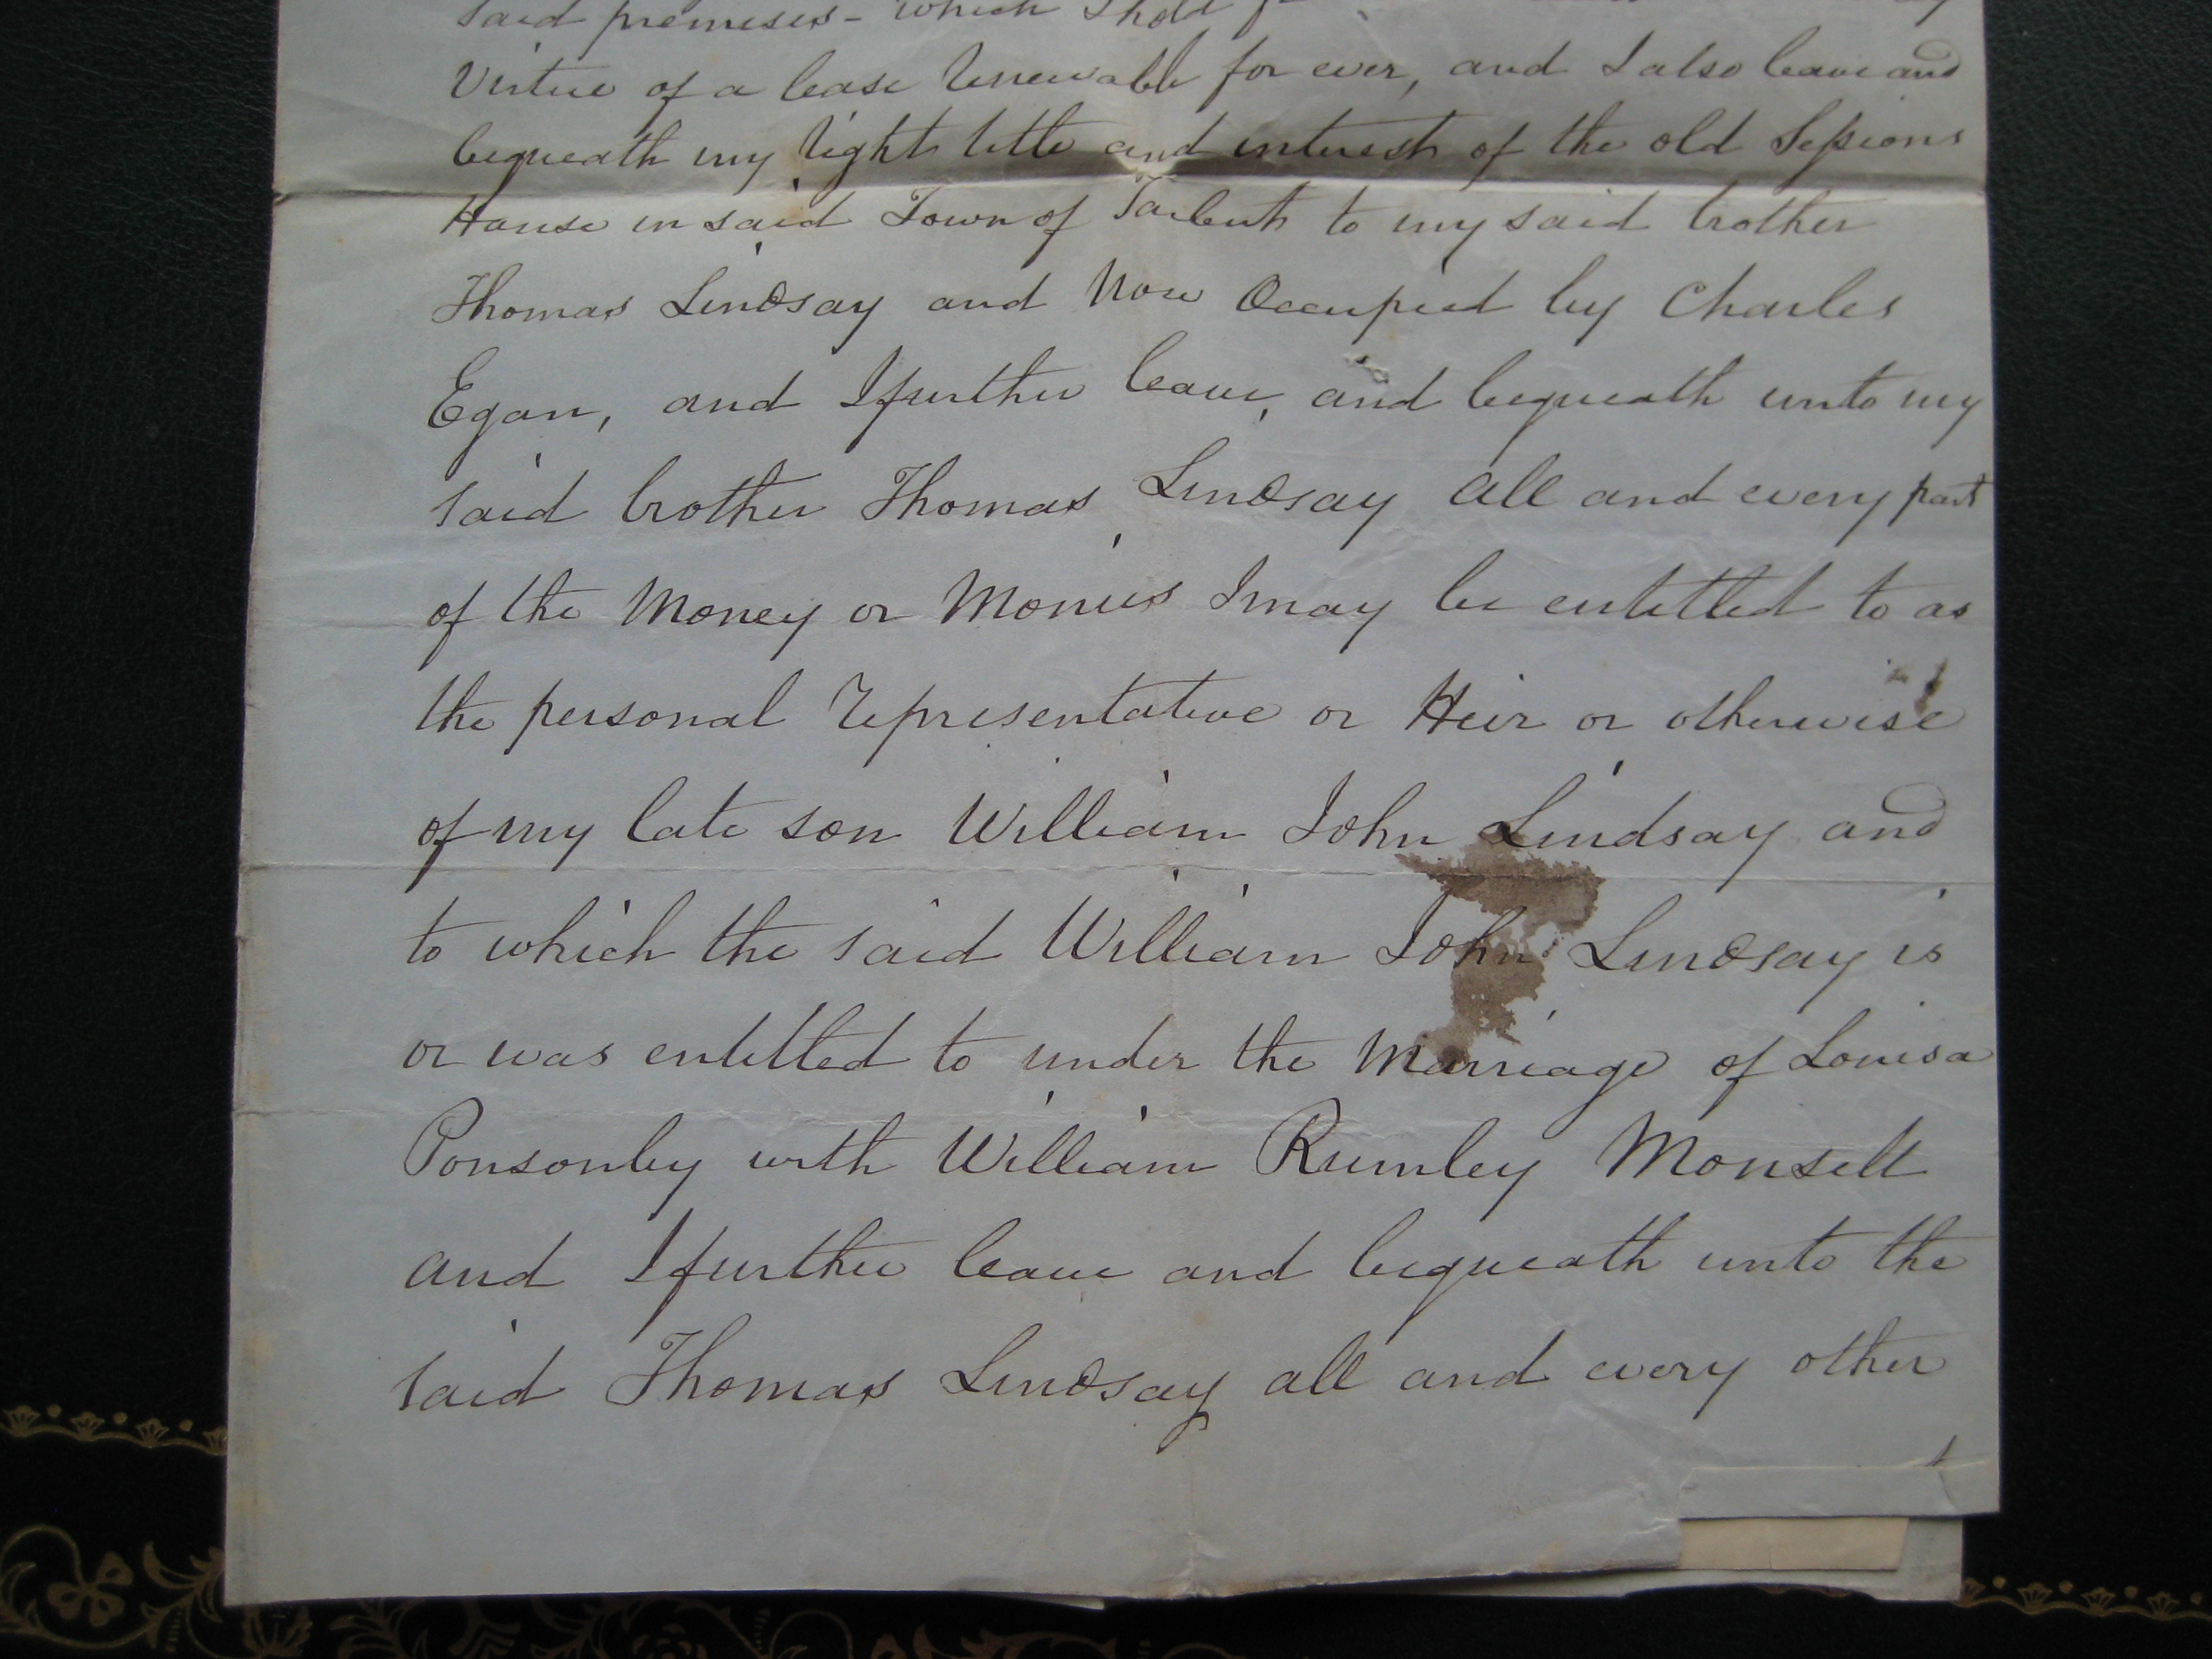 said premises - which I hold
Virtue of a lease renewable for ever, and I also leave and
bequeath my right title and interest of the old Sessions
House in said Town of Tarbert to my said brother
Thomas Lindsay and Now Occupied by Charles
Egan, and I further leave, and bequeath unto my
said brother Thomas Lindsay all and every part
of the Money or Monies I may be entitled to as
the personal representative or Heir or otherwise
of my late son William John Lindsay and
to which the said William John Lindsay is
or was entitled to under the Marriage of Louisa
Ponsonby with William Rumley Monsell
and I further leave and bequeath unto the
said Thomas Lindsay all and every other